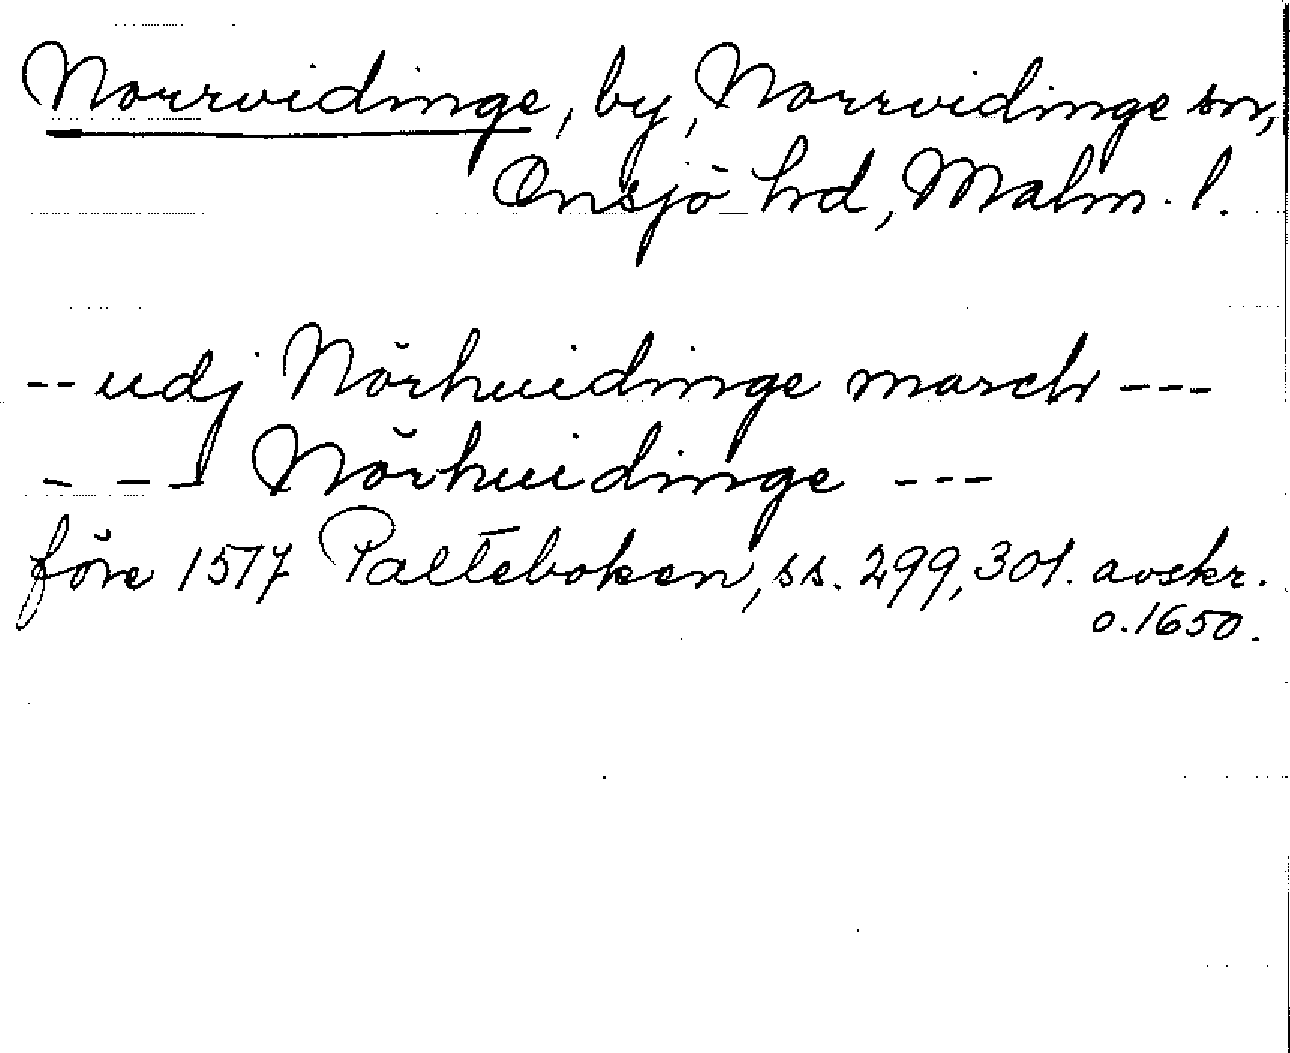 Norrvidinge, by, Norrvidinge sn,
Onsjö hrd, Malm. l.
-- udj Nörhuidinge march ---
- - - Nörhuidinge ---
före 1517 Palteboken, ss. 299, 301. avskr.
o. 1650.